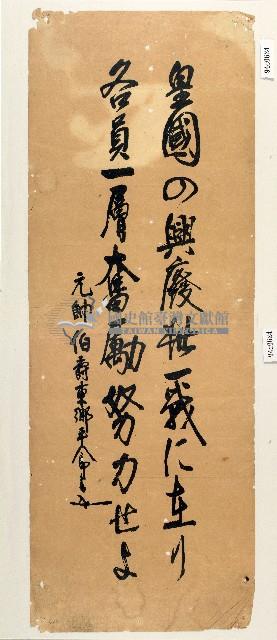 皇國の興廢此一戰に在り
各員一層奮勵努力せよ
元帥伯爵東郷平八郎書
國史館臺灣文獻館